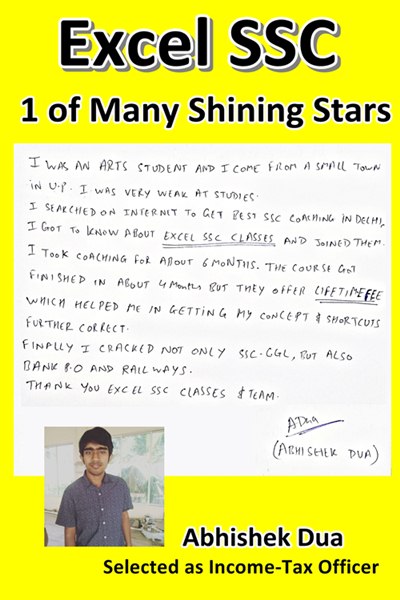 Excel SSC
1 of Many Shining Stars
I WAS AN ARTS STUDENT AND I COME FROM A SMALL TOWN
IN U.P. I WAS VERY WEAK AT STUDIES.
I SEARCHED ON INTERNET TO GET BEST SSC COACHING IN DELHI,
I GOT TO KNOW ABOUT EXCEL SSC CLASSES AND JOINED THEM.
I TOOK COACHING FOR ABOUT 6 MONTHS. THE COURSE GOT
FINISHED IN ABOUT 4 MONTHS BUT THEY OFFER LIFETIME FEE
WHICH HELPED ME IN GETTING MY CONCEPT & SHORTCUTS
FURTHER CORRECT.
FINALLY I CRACKED NOT ONLY SSC-CGL, BUT ALSO
BANK P.O AND RAILWAYS.
THANK YOU EXCEL SSC CLASSES & TEAM.
ADua
(ABHISHEK DUA)
Abhishek Dua
Selected as Income-Tax Officer